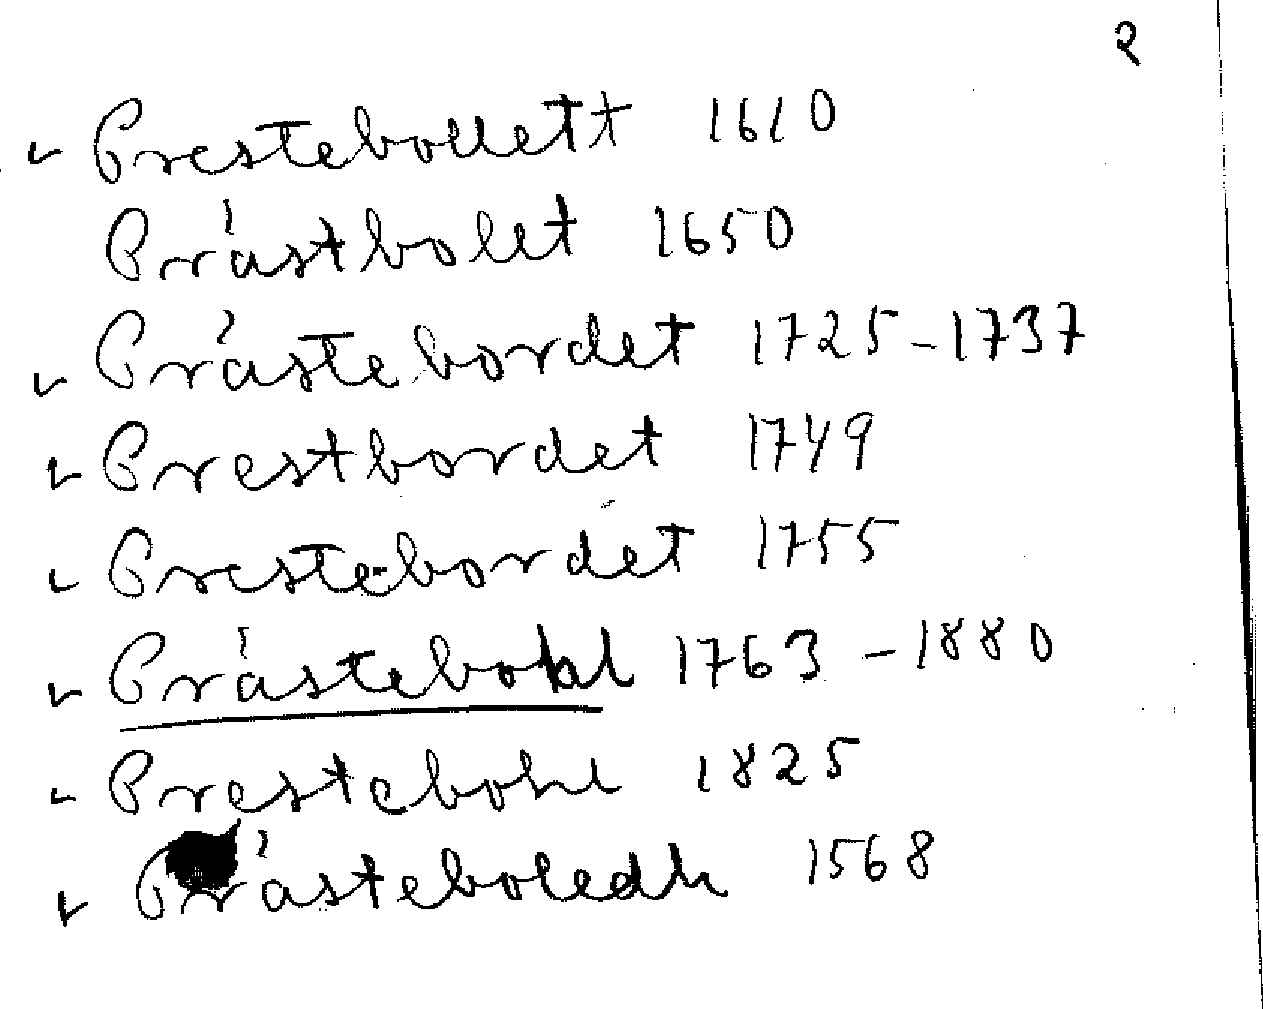 2
✓ Prestebollett 1610
Prästbolet 1650
✓ Prästebordet 1725-1737
✓ Prestbordet 1749
✓ Prestebordet 1755
✓ Prästebohl 1763 - 1880
✓ Prestebohl 1825
✓ Prästeboledh 1568